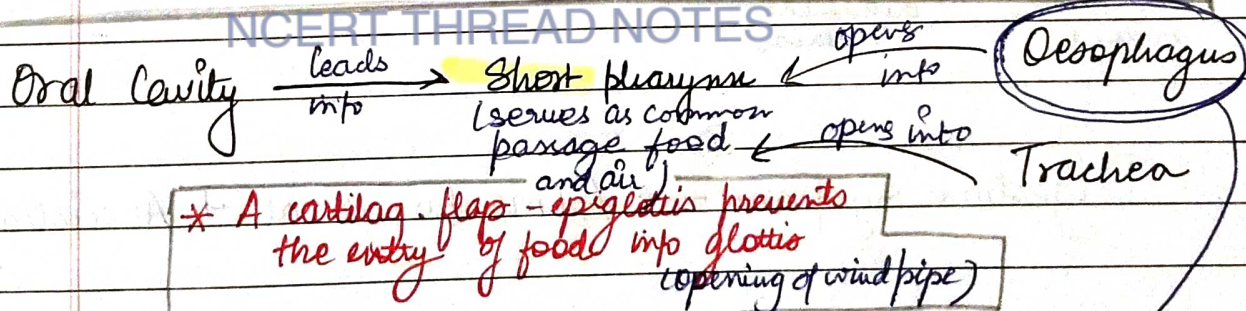 NCERT THREAD NOTES
Oral Cavity leads into Short pharynx opens into Oesophagus
(serves as common
passage food opens into Trachea
and air)
* A cartilag. flap - epiglottis prevents
the entry of food into glottis
(opening of windpipe)